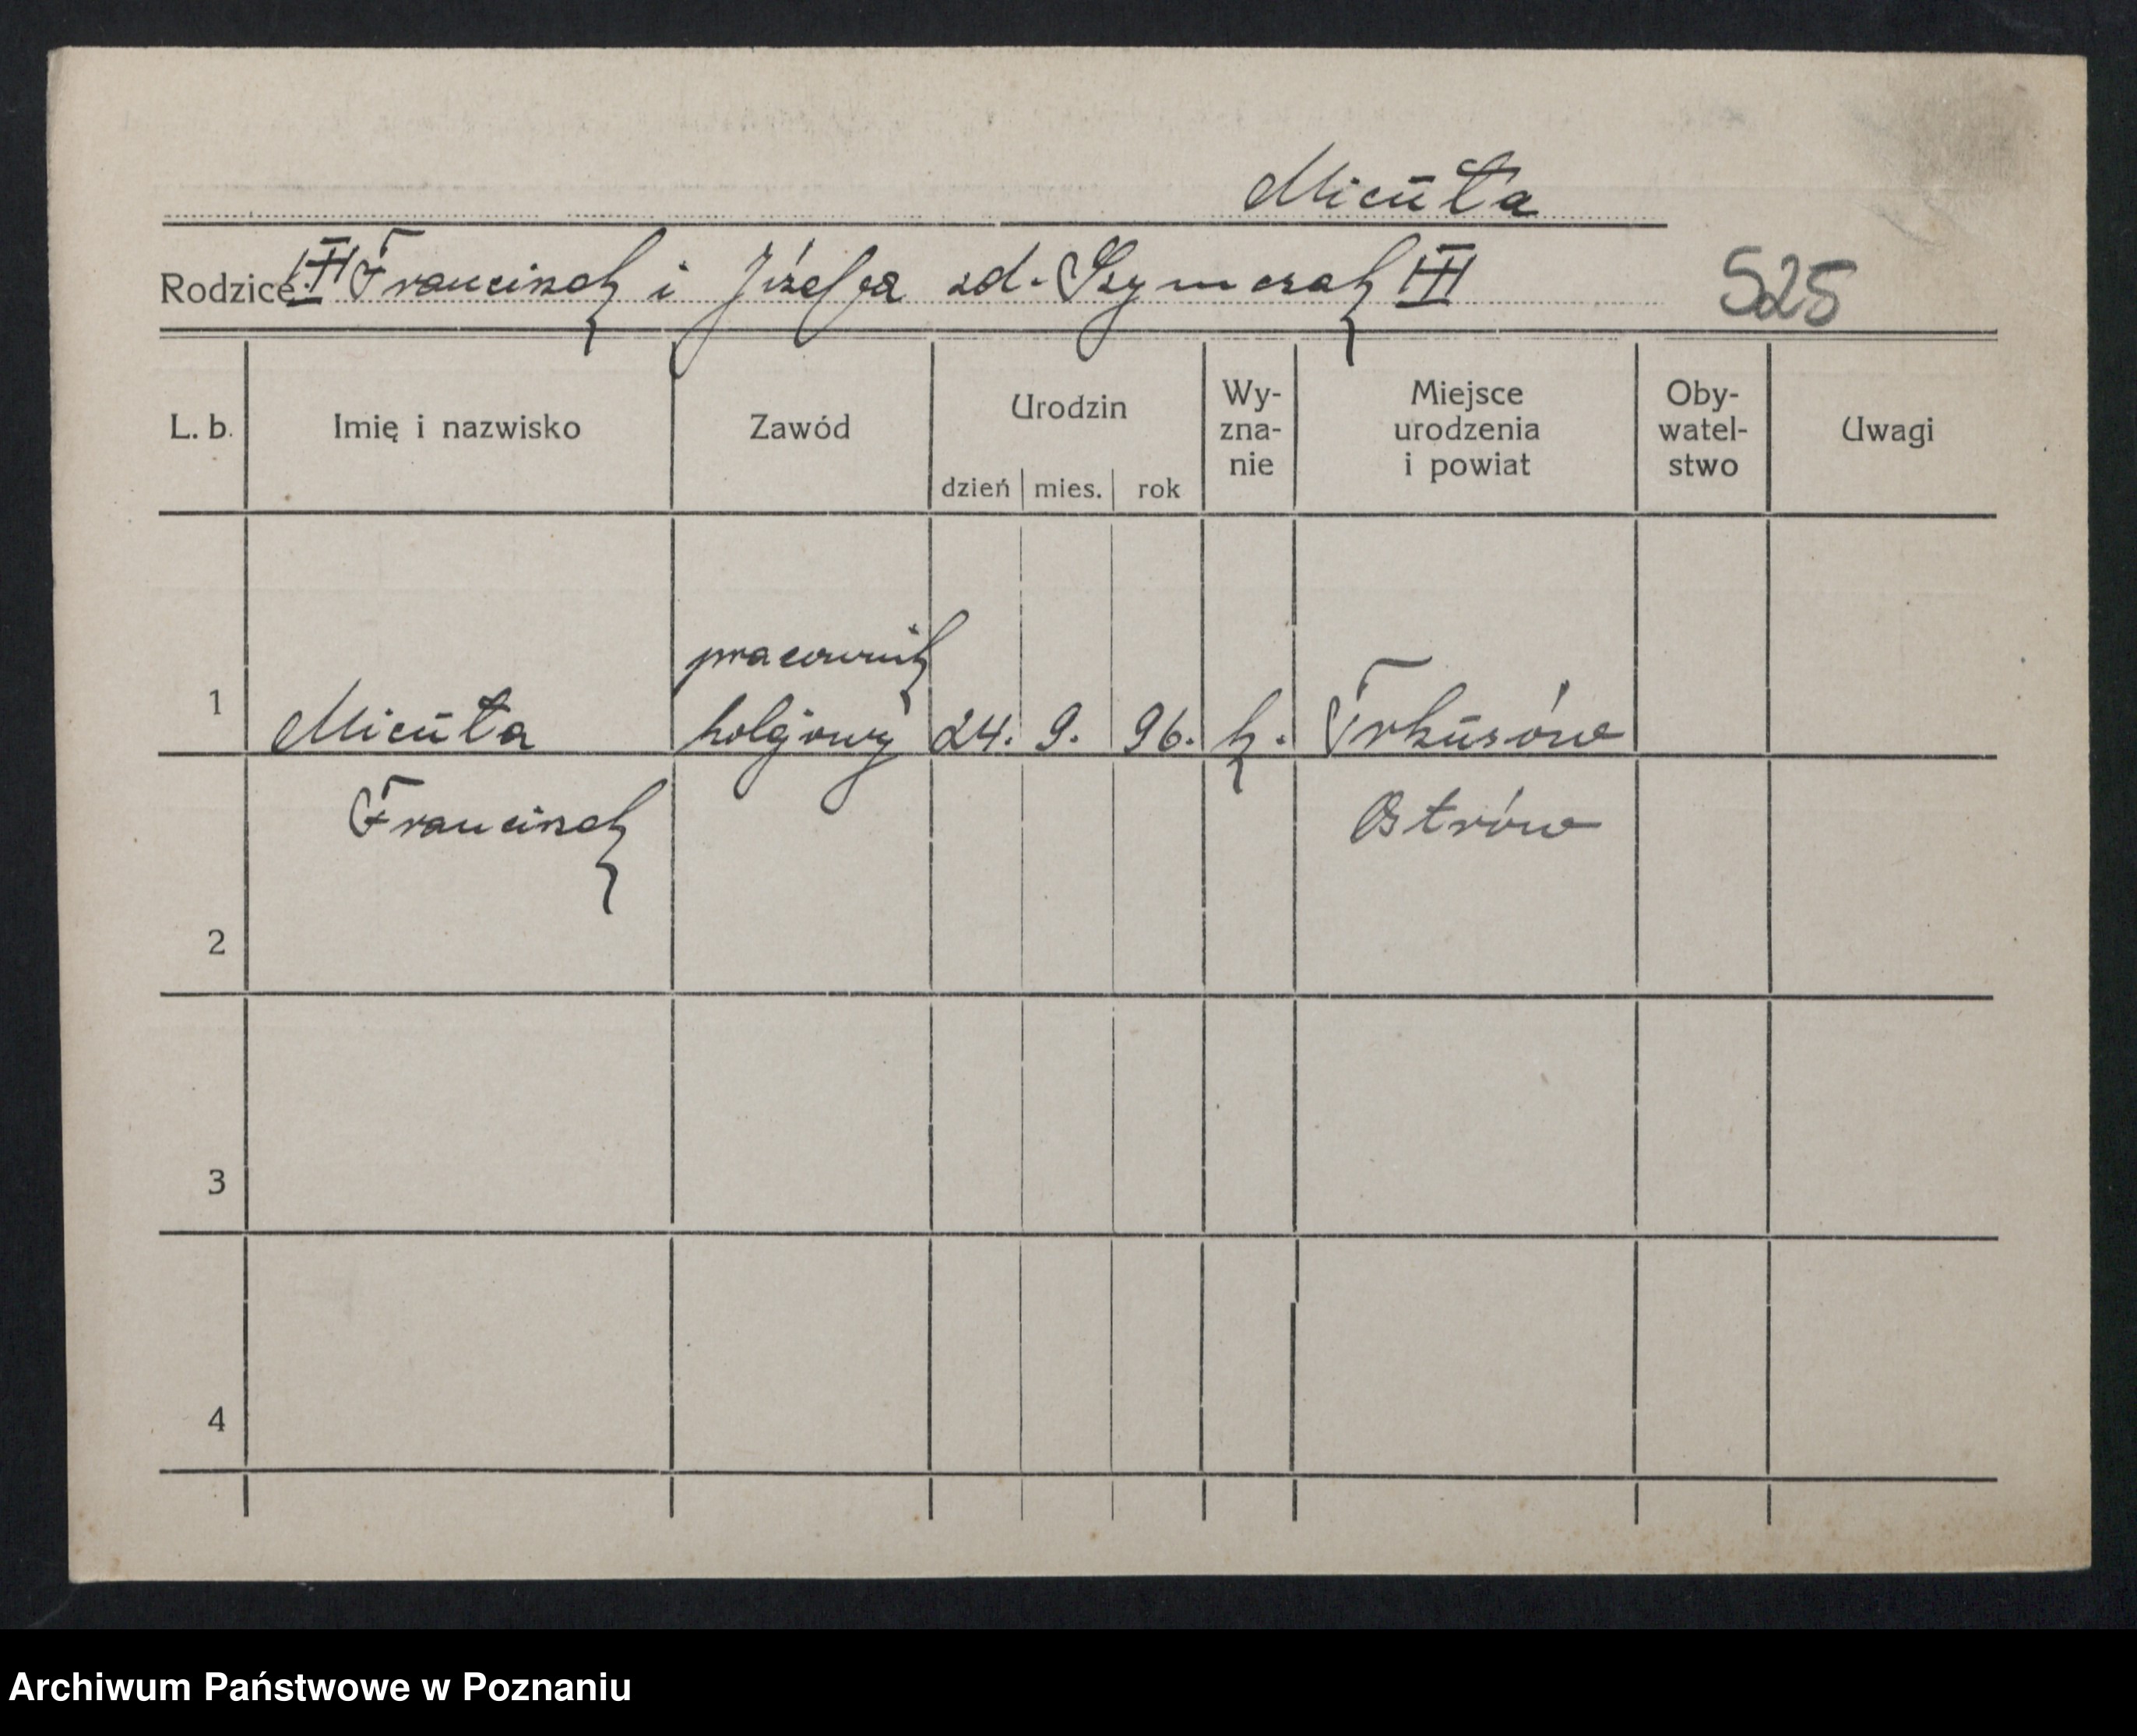 Micuta
Rodzice: Franciszek i Józefa zd. Szymczak
525
L. b. Imię i nazwisko Zawód Urodzin dzień mies. rok Wy-zna-nie Miejsce urodzenia i powiat Oby-watel-stwo Uwagi
pracownik
1 Micuta kolejowy 24. 9. 96. k. Trkusów
Franciszek Ostrów
2
3
4
Archiwum Państwowe w Poznaniu